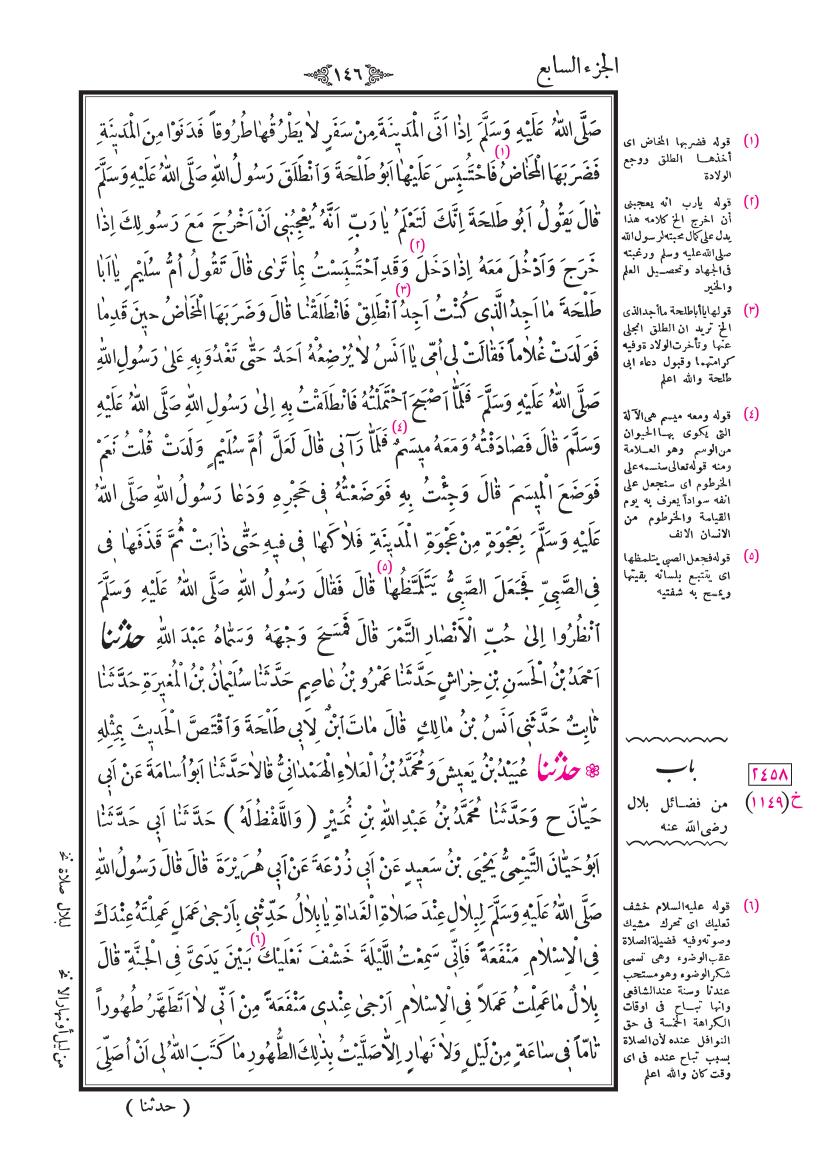 الجزء السابع
١٤٦
صَلَّى اللهُ عَلَيْهِ وَسَلَّمَ إِذَا اَتَى الْمَدِينَةَ مِنْ سَفَرٍ لَا يَطْرُقُهَا طُرُوقاً فَدَنَوْا مِنَ الْمَدِينَةِ
فَضَرَبَهَا الْمَخَاضُ (١) فَاحْتُبِسَ عَلَيْهَا اَبُو طَلْحَةَ وَانْطَلَقَ رَسُولُ اللهِ صَلَّى اللهُ عَلَيْهِ وَسَلَّمَ
قَالَ يَقُولُ اَبُو طَلْحَةَ اِنَّكَ لَتَعْلَمُ يَا رَبِّ اَنَّهُ يُعْجِبُنِى اَنْ اَخْرُجَ مَعَ رَسُولِكَ اِذَا
خَرَجَ وَاَدْخُلَ مَعَهُ اِذَا دَخَلَ (٢) وَقَدِ احْتُبِسْتُ بِمَا تَرٰى قَالَ تَقُولُ اُمُّ سُلَيْمٍ يَا اَبَا
طَلْحَةَ مَا اَجِدُ الَّذِى كُنْتُ اَجِدُ (٣) اَنْطَلِقْ فَانْطَلَقْنَا قَالَ وَضَرَبَهَا الْمَخَاضُ حِينَ قَدِمَا
فَوَلَدَتْ غُلَاماً فَقَالَتْ لِى اُمِّى يَا اَنَسُ لَا يُرْضِعُهُ اَحَدٌ حَتّٰى تَغْدُوَ بِهِ عَلٰى رَسُولِ اللهِ
صَلَّى اللهُ عَلَيْهِ وَسَلَّمَ فَلَمَّا اَصْبَحَ احْتَمَلْتُهُ فَانْطَلَقْتُ بِهِ اِلٰى رَسُولِ اللهِ صَلَّى اللهُ عَلَيْهِ
وَسَلَّمَ قَالَ فَصَادَفْتُهُ وَمَعَهُ مِيسَمٌ (٤) فَلَمَّا رَآنِى قَالَ لَعَلَّ اُمَّ سُلَيْمٍ وَلَدَتْ قُلْتُ نَعَمْ
فَوَضَعَ الْمِيسَمَ قَالَ وَجِئْتُ بِهِ فَوَضَعْتُهُ فِى حَجْرِهِ وَدَعَا رَسُولُ اللهِ صَلَّى اللهُ
عَلَيْهِ وَسَلَّمَ بِعَجْوَةٍ مِنْ عَجْوَةِ الْمَدِينَةِ فَلَاكَهَا فِى فِيهِ حَتّٰى ذَابَتْ ثُمَّ قَذَفَهَا فِى
فِى الصَّبِىِّ فَجَعَلَ الصَّبِىُّ يَتَلَمَّظُهَا (٥) قَالَ فَقَالَ رَسُولُ اللهِ صَلَّى اللهُ عَلَيْهِ وَسَلَّمَ
اَنْظُرُوا اِلٰى حُبِّ الْاَنْصَارِ التَّمْرَ قَالَ فَمَسَحَ وَجْهَهُ وَسَمَّاهُ عَبْدَ اللهِ حدثنا
اَحْمَدُ بْنُ الْحَسَنِ بْنِ خِرَاشٍ حَدَّثَنَا عَمْرُو بْنُ عَاصِمٍ حَدَّثَنَا سُلَيْمَانُ بْنُ الْمُغِيرَةِ حَدَّثَنَا
ثَابِتٌ حَدَّثَنِى اَنَسُ بْنُ مَالِكٍ قَالَ مَاتَ ابْنٌ لِاَبِى طَلْحَةَ وَاقْتَصَّ الْحَدِيثَ بِمِثْلِهِ
❁ حدثنا عُبَيْدُ بْنُ يَعِيشَ وَمُحَمَّدُ بْنُ الْعَلَاءِ الْهَمْدَانِىُّ قَالَا حَدَّثَنَا اَبُو اُسَامَةَ عَنْ اَبِى
حَيَّانَ ح وَحَدَّثَنَا مُحَمَّدُ بْنُ عَبْدِ اللهِ بْنِ نُمَيْرٍ ( وَاللَّفْظُ لَهُ ) حَدَّثَنَا اَبِى حَدَّثَنَا
اَبُو حَيَّانَ التَّيْمِىُّ يَحْيَى بْنُ سَعِيدٍ عَنْ اَبِى زُرْعَةَ عَنْ اَبِى هُرَيْرَةَ قَالَ قَالَ رَسُولُ اللهِ
صَلَّى اللهُ عَلَيْهِ وَسَلَّمَ لِبِلَالٍ عِنْدَ صَلَاةِ الْغَدَاةِ يَا بِلَالُ حَدِّثْنِى بِاَرْجٰى عَمَلٍ عَمِلْتَهُ عِنْدَكَ
فِى الْاِسْلَامِ مَنْفَعَةً فَاِنِّى سَمِعْتُ اللَّيْلَةَ خَشْفَ نَعْلَيْكَ (٦) بَيْنَ يَدَىَّ فِى الْجَنَّةِ قَالَ
بِلَالٌ مَا عَمِلْتُ عَمَلاً فِى الْاِسْلَامِ اَرْجٰى عِنْدِى مَنْفَعَةً مِنْ اَنِّى لَا اَتَطَهَّرُ طُهُوراً
تَامّاً فِى سَاعَةٍ مِنْ لَيْلٍ وَلَا نَهَارٍ اِلَّا صَلَّيْتُ بِذٰلِكَ الطُّهُورِ مَا كَتَبَ اللهُ لِى اَنْ اُصَلِّىَ
( حدثنا )
(١) قوله فضربها المخاض اى
أخذها الطلق ووجع
الولادة
(٢) قوله يارب انه يعجبنى
أن اخرج الخ كلامه هذا
يدل على كمال محبته لرسول الله
صلى الله عليه وسلم ورغبته
فى الجهاد وتحصيل العلم
والخير
(٣) قولها ياأباطلحة ماأجد الذى
الخ تريد ان الطلق انجلى
عنها وتأخرت الولادة وفيه
كرامتهما وقبول دعاء ابى
طلحة والله اعلم
(٤) قوله ومعه ميسم هى الآلة
التى يكوى بها الحيوان
من الوسم وهو العلامة
ومنه قوله تعالى سنسمه على
الخرطوم اى سنجعل على
انفه سواداً يعرف به يوم
القيامة والخرطوم من
الانسان الانف
(٥) قوله فجعل الصبى يتلمظها
اى يتتبع بلسانه بقيتها
ويمسح به شفتيه
باب
٢٤٥٨
من فضائل بلال
خ (١١٤٩)
رضى الله عنه
(٦) قوله عليه السلام خشف
نعليك اى تحرك مشيك
وصوته وفيه فضيلة الصلاة
عقب الوضوء وهى تسمى
شكر الوضوء وهو مستحب
عندنا وسنة عند الشافعى
وانها تباح فى اوقات
الكراهة الخمسة فى حق
النوافل عنده لأن الصلاة
بسبب تباح عنده فى اى
وقت كان والله اعلم
لبلال صلاة نخ
من ليل أو نهار الا نخ